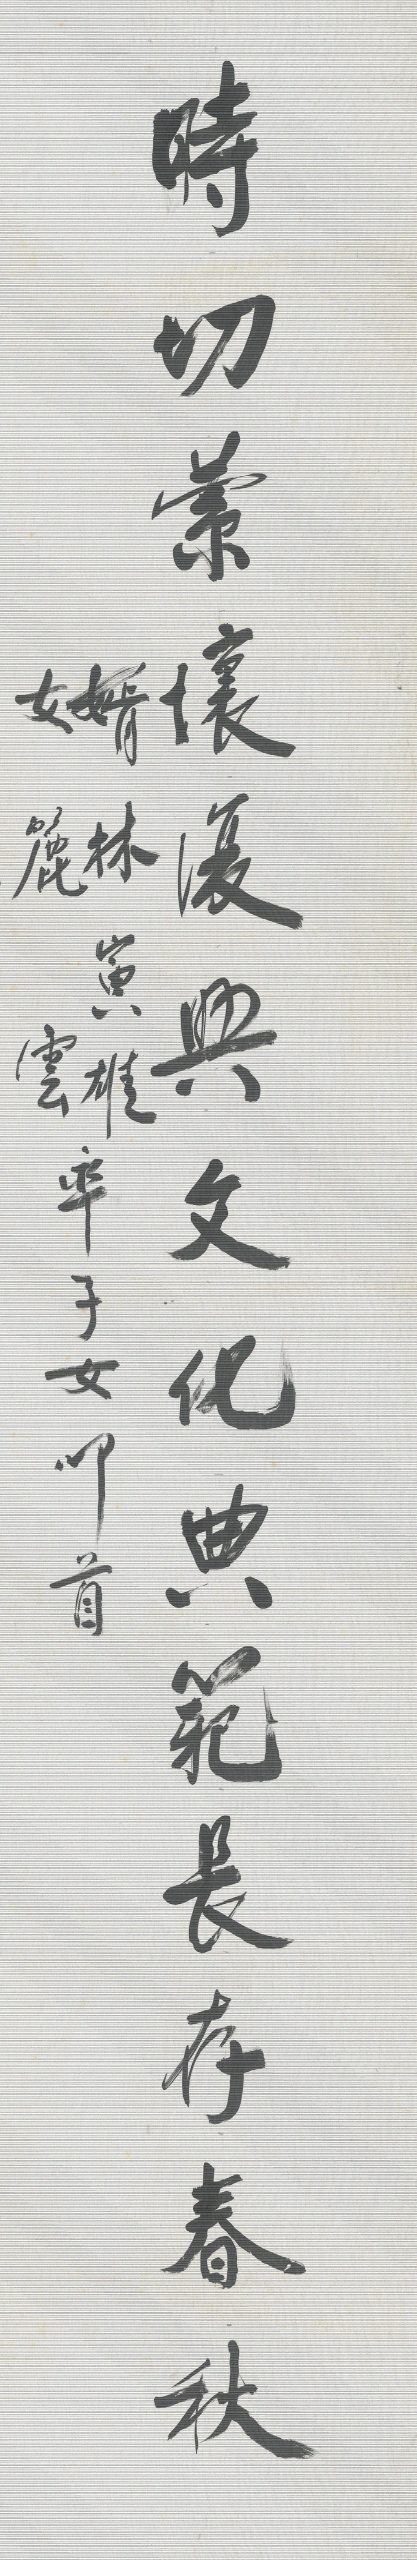 時切縈懷復興文化典範長存春秋
婿林寅雄
女麗雲
率子女叩首